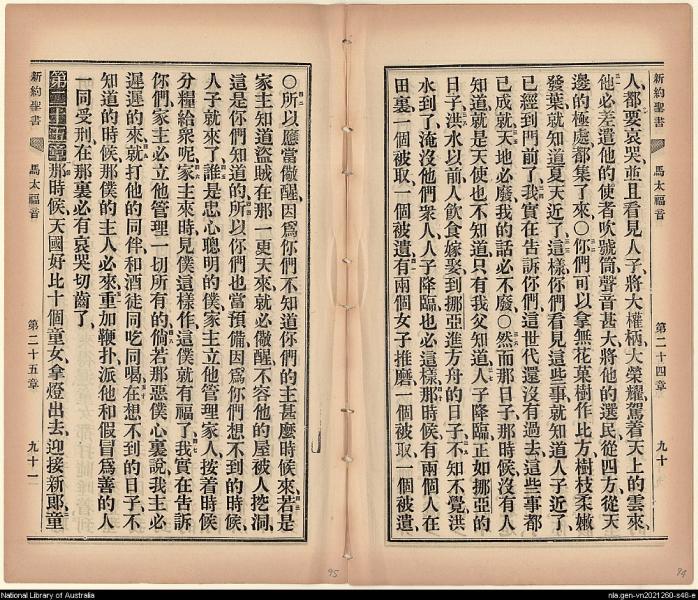 新約聖書 馬太福音 第二十四章 九十
人、都要哀哭、並且看見人子、將大權柄、大榮耀、駕着天上的雲來、
他必差遣他的使者、吹號筒、聲音甚大、將他的選民、從四方、從天
邊的極處、都集了來、〇你們可以拿無花菓樹作比方、樹枝柔嫩
發葉、就知道夏天近了、這樣、你們看見這些事、就知道人子近了、
已經到門前了、我實在告訴你們、這世代還沒有過去、這些事都
已成就、天地必廢、我的話必不廢、〇然而那日子、那時候、沒有人
知道、就是天使也不知道、只有我父知道、人子降臨、正如挪亞的
日子、洪水以前、人飲食嫁娶、到挪亞進方舟的日子、不知不覺洪
水到了、淹沒他們眾人、人子降臨、也必這樣、那時候、有兩個人在
田裏、一個被取、一個被遺、有兩個女子推磨、一個被取、一個被遺、
〇所以應當儆醒、因爲你們不知道你們的主、甚麽時候來、若是
家主知道盜賊在那一更天來、就必儆醒、不容他的屋被人挖洞、
這是你們知道的、所以你們也當預備、因爲你們想不到的時候、
人子就來了、誰是忠心聰明的僕、家主立他管理家人、按着時候
分糧給眾呢、家主來時、見僕這樣作、這僕就有福了、我實在告訴
你們、家主必立他管理一切所有的、倘若那惡僕、心裏說、我主必
遲遲的來、就打他的同伴、和酒徒同吃同喝、在想不到的日子、不
知道的時候、那僕的主人必來、重加鞭扑、派他和假冒爲善的人
一同受刑、在那裏必有哀哭切齒了、
第二十五章 那時候、天國好比十個童女、拿燈出去、迎接新郞、童
新約聖書 馬太福音 第二十五章 九十一
95
94
National Library of Australia
nla.gen-vn2021260-s48-e